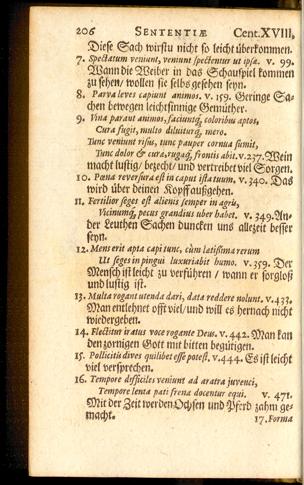 206 SENTENTIÆ Cent. XVIII,
Diese Sach wirstu nicht so leicht überkommen.
7. Spectatum veniunt, veniunt spectentur ut ipsæ. v. 99.
Wann die Weiber in das Schauspiel kommen
zu sehen/ wollen sie selbs gesehen seyn.
8. Parva leves capiunt animos. v. 159. Geringe Sa-
chen bewegen leichtsinnige Gemüther.
9. Vina parant animos, faciuntq; coloribus aptos,
Cura fugit, multo diluiturq; mero.
Tunc veniunt risus, tunc pauper cornua sumit,
Tunc dolor & cura, rugaq; frontis abit. v. 237. Wein
macht lustig/ bezecht/ und vertreibet viel Sorgen.
10. Pœna reversura est in caput ista tuum. v. 340. Das
wird über deinen Kopff außgehen.
11. Fertilior seges est alienis semper in agris,
Vicinumq; pecus grandius uber habet. v. 349. An-
der Leuthen Sachen duncken uns allezeit besser
seyn.
12. Mens erit apta capi tunc, cùm latissima rerum
Ut seges in pingui luxuriabit humo. v. 359. Der
Mensch ist leicht zu verführen/ wann er sorgloß
und lustig ist.
13. Multa rogant utenda dari, data reddere nolunt. v. 433.
Man entlehnet offt viel/ und will es hernach nicht
wiedergeben.
14. Flectitur iratus voce rogante Deus. v. 442. Man kan
den zornigen Gott mit bitten begütigen.
15. Pollicitis dives quilibet esse potest. v. 444. Es ist leicht
viel versprechen.
16. Tempore difficiles veniunt ad aratra juvenci,
Tempore lenta pati frena docentur equi. v. 471.
Mit der Zeit werden Ochsen und Pferd zahm ge-
macht.
17. Forma